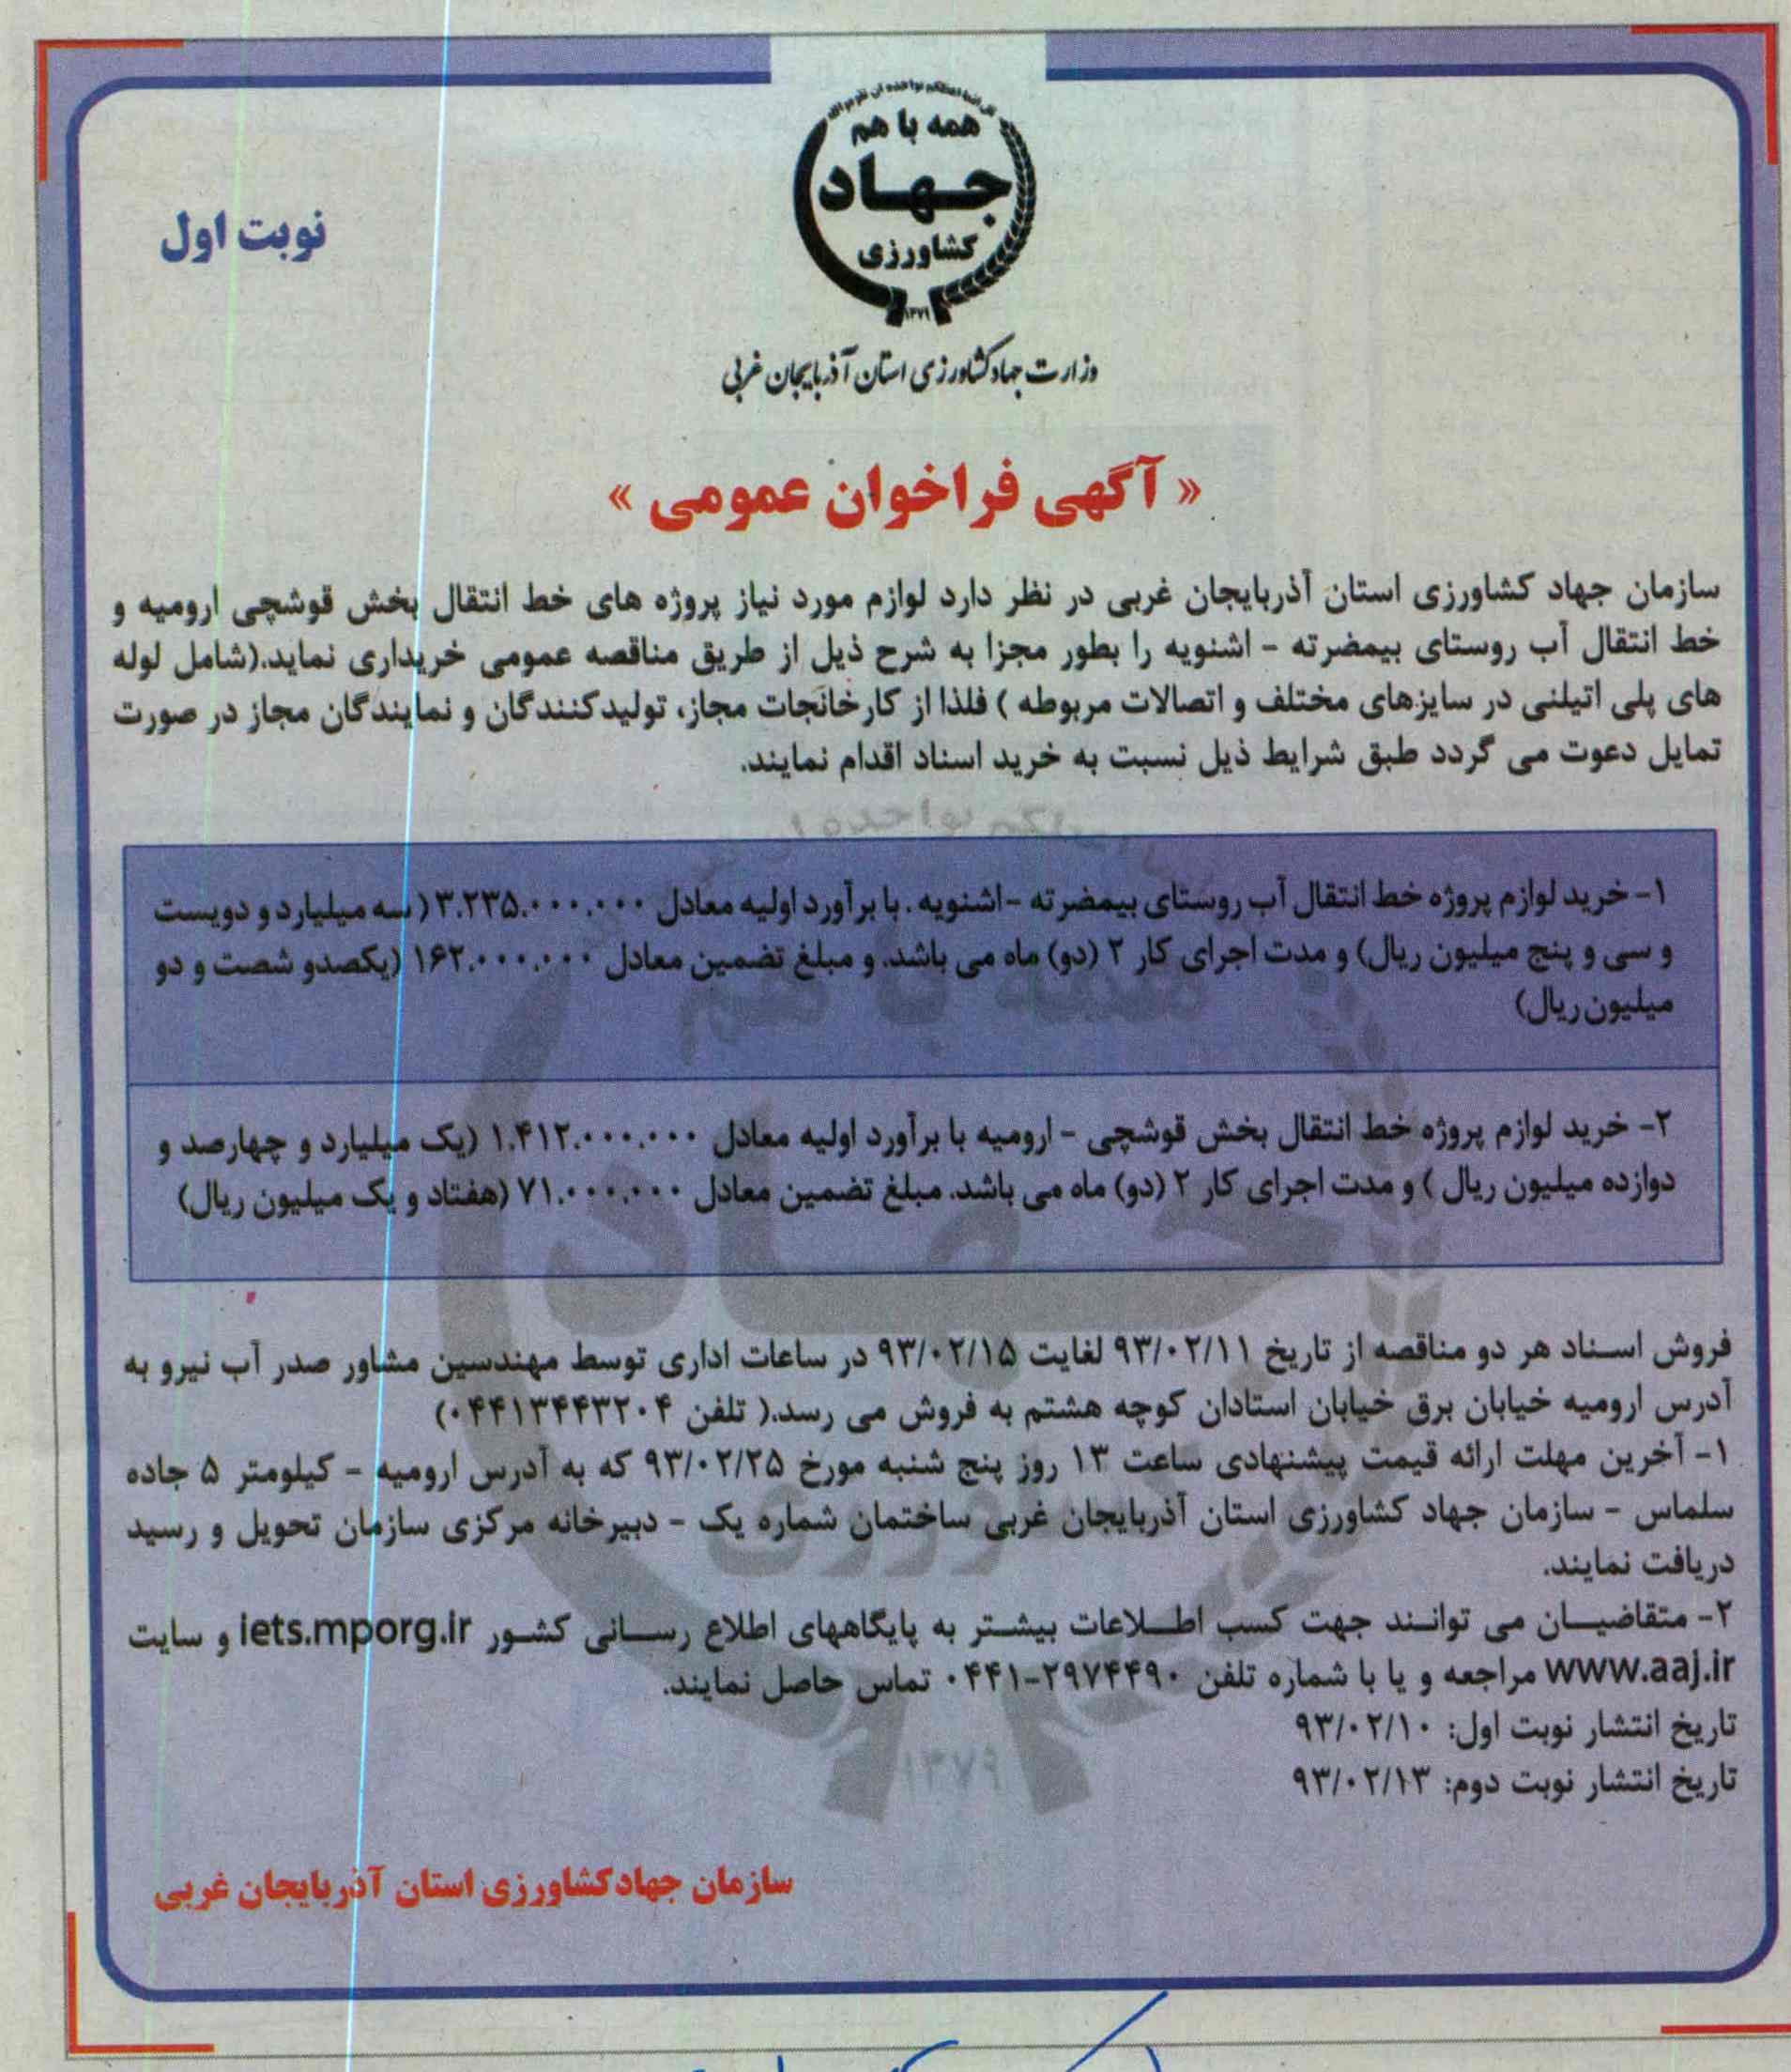 همه با هم
جهاد
کشاورزی
۱۳۷۹
نوبت اول
وزارت جهاد کشاورزی استان آذربایجان غربی
« آگهی فراخوان عمومی »
سازمان جهاد کشاورزی استان آذربایجان غربی در نظر دارد لوازم مورد نیاز پروژه های خط انتقال بخش قوشچی ارومیه و
خط انتقال آب روستای بیمضرته - اشنویه را بطور مجزا به شرح ذیل از طریق مناقصه عمومی خریداری نماید.(شامل لوله
های پلی اتیلنی در سایزهای مختلف و اتصالات مربوطه ) فلذا از کارخانجات مجاز، تولیدکنندگان و نمایندگان مجاز در صورت
تمایل دعوت می گردد طبق شرایط ذیل نسبت به خرید اسناد اقدام نمایند.
۱- خرید لوازم پروژه خط انتقال آب روستای بیمضرته -اشنویه . با برآورد اولیه معادل ۳.۲۳۵.۰۰۰.۰۰۰ ( سه میلیارد و دویست
و سی و پنج میلیون ریال) و مدت اجرای کار ۲ (دو) ماه می باشد. و مبلغ تضمین معادل ۱۶۲.۰۰۰.۰۰۰ (یکصدو شصت و دو
میلیون ریال)
۲- خرید لوازم پروژه خط انتقال بخش قوشچی - ارومیه با برآورد اولیه معادل ۱.۴۱۲.۰۰۰.۰۰۰ (یک میلیارد و چهارصد و
دوازده میلیون ریال ) و مدت اجرای کار ۲ (دو) ماه می باشد. مبلغ تضمین معادل ۷۱.۰۰۰.۰۰۰ (هفتاد و یک میلیون ریال)
فروش اسناد هر دو مناقصه از تاریخ ۹۳/۰۲/۱۱ لغایت ۹۳/۰۲/۱۵ در ساعات اداری توسط مهندسین مشاور صدر آب نیرو به
آدرس ارومیه خیابان برق خیابان استادان کوچه هشتم به فروش می رسد.( تلفن ۰۴۴۱۳۴۴۳۲۰۴)
۱- آخرین مهلت ارائه قیمت پیشنهادی ساعت ۱۳ روز پنج شنبه مورخ ۹۳/۰۲/۲۵ که به آدرس ارومیه - کیلومتر ۵ جاده
سلماس - سازمان جهاد کشاورزی استان آذربایجان غربی ساختمان شماره یک - دبیرخانه مرکزی سازمان تحویل و رسید
دریافت نمایند.
۲- متقاضیان می توانند جهت کسب اطلاعات بیشتر به پایگاههای اطلاع رسانی کشور iets.mporg.ir و سایت
www.aaj.ir مراجعه و یا با شماره تلفن ۰۴۴۱-۲۹۷۴۴۹۰ تماس حاصل نمایند.
تاریخ انتشار نوبت اول: ۹۳/۰۲/۱۰
تاریخ انتشار نوبت دوم: ۹۳/۰۲/۱۳
سازمان جهادکشاورزی استان آذربایجان غربی